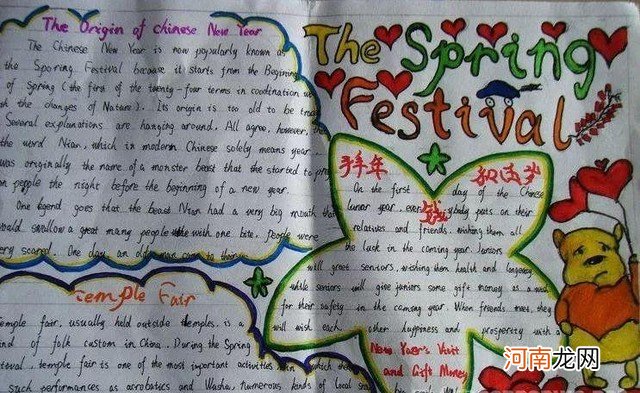 The Origin of Chinese New Year
The Chinese New Year is now popularly known as
the Sporing Festival because it starts from the Beginning
of Spring (the first of the twenty-four terms in coodination
the changes of Nature). Its origin is too old to be
Several explanations are hanging around. All agree, however,
the word Nian, which in modern Chinese solely means year,
was originally the name of a monster beast that the started to
on people the night before the beginning of a new year.
One legend goes that the beast Nian had a very big mouth
would swallow a great many people with one bite. People were
very scared. One day, an old man came to their
Temple Fair
Temple fair, usually held outside temples, is a
kind of folk custom in China. During the Spring
Festival, temple fair is one of the most important activities in which there
such performances as acrobatics and Wushu, numerous kinds of local
The Spring
Festival
拜年
On the first day of the Chinese
lunar year, everybody puts on their
钱
relatives and friends, wishing them all
the luck in the coming year. Juniors
will greet seniors, wishing them health and longevity
while seniors will give juniors some gift money as a
for their safety in the coming year. When friends meet, they
will wish each other happiness and prosperity with a
New Yaer's Visit
and Gift Money
河南龙网